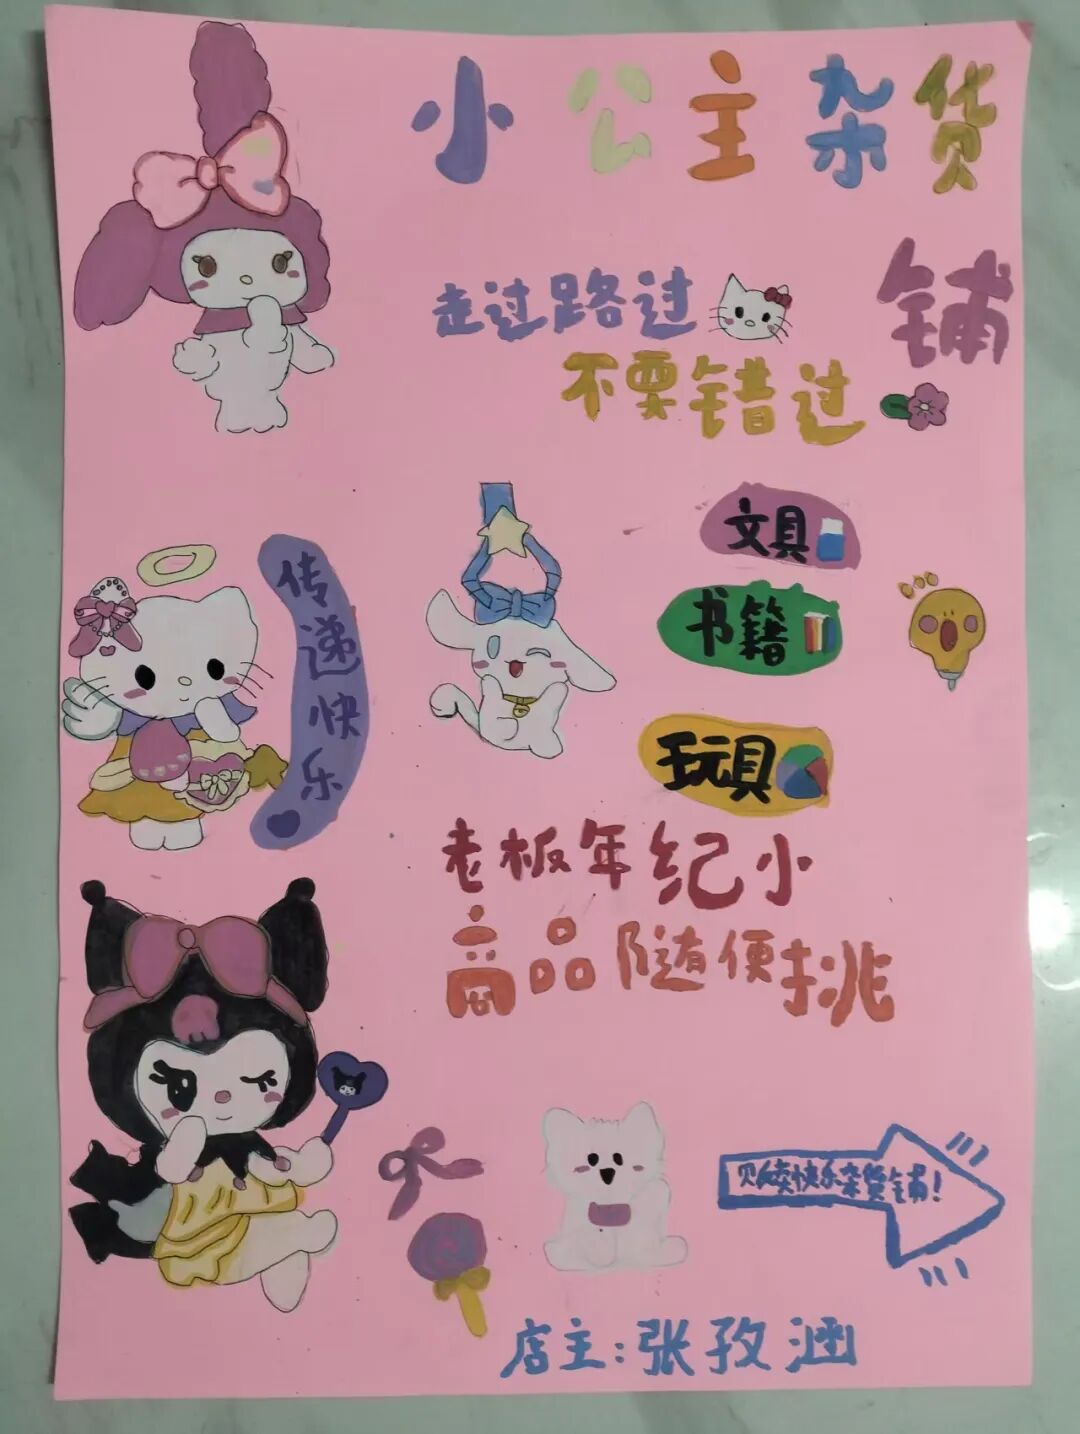 小公主杂货
铺
走过路过
不要错过
文具
书籍
玩具
传递快乐
老板年纪小
商品随便挑
贩卖快乐杂货铺！
店主：张孜涵